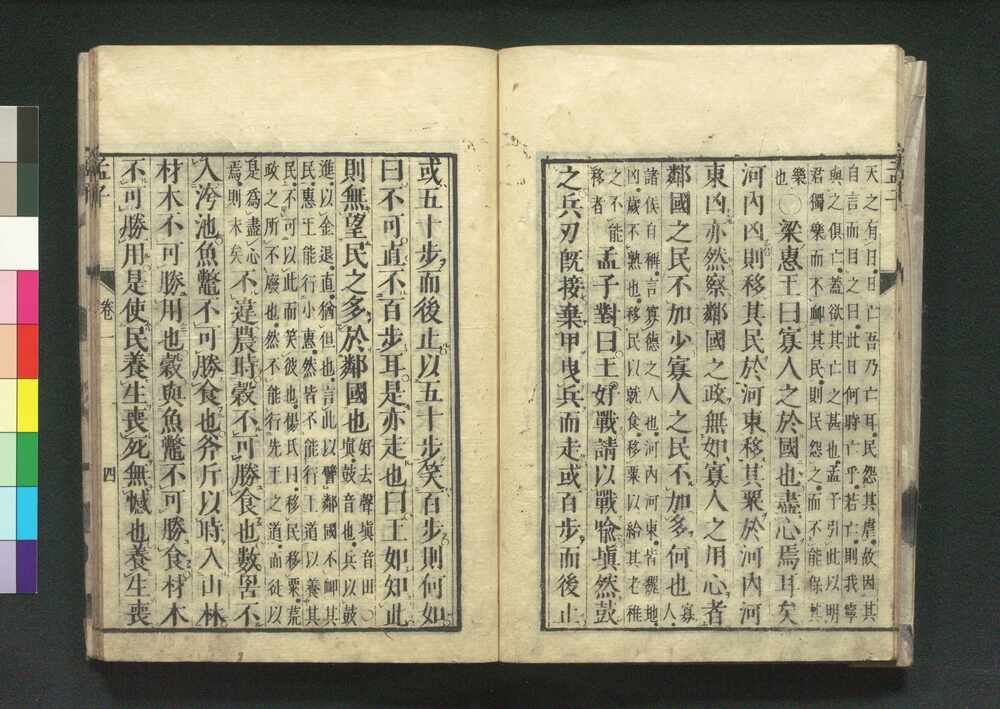 天之有日日亡吾乃亡耳民怨其虐故因其
自言而目之曰此日何時亡乎若亡則我寧
與之俱亡蓋欲其亡之甚也孟子引此以明
君獨樂而不恤其民則民怨之而不能保其
樂
也
○梁惠王曰寡人之於國也盡心焉耳矣
河內凶則移其民於河東移其粟於河內河
東凶亦然察鄰國之政無如寡人之用心者
鄰國之民不加少寡人之民不加多何也
寡
人
諸侯自稱言寡德之人也河內河東皆魏地
凶歲不熟也移民以就食移粟以給其老稚
之不能
移者
孟子對曰王好戰請以戰喻塡然鼓
之兵刃旣接棄甲曳兵而走或百步而後止
或五十步而後止以五十步笑百步則何如
曰不可直不百步耳是亦走也曰王如知此
則無望民之多於鄰國也
好去聲塡音田○
塡鼓音也兵以鼓
進以金退直猶但也言此以譬鄰國不恤其
民惠王能行小惠然皆不能行王道以養其
民不可以此而笑彼也楊氏曰移民移粟荒
政之所不廢也然不能行先王之道而徒以
是爲盡心
焉則末矣
不違農時穀不可勝食也數罟不
入洿池魚鼈不可勝食也斧斤以時入山林
材木不可勝用也穀與魚鼈不可勝食材木
不可勝用是使民養生喪死無憾也養生喪
孟子
卷一
四